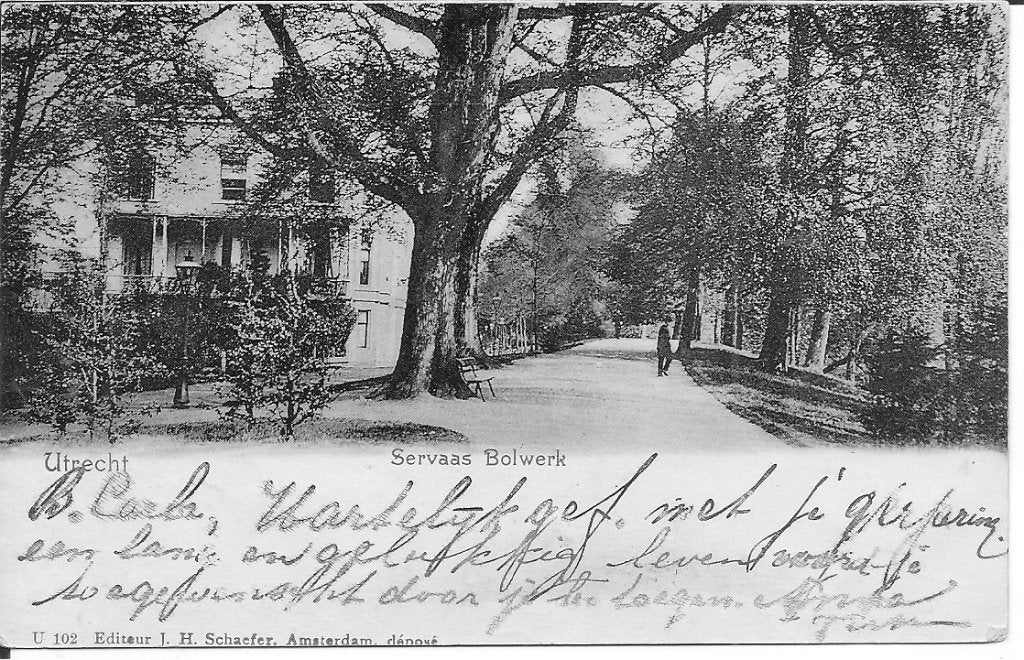 Utrecht
Servaas Bolwerk
B. Carla, Hartelijk gef. met je
een lang en gelukkig leven word je
toegewenscht door je
U 102 Editeur J. H. Schaefer, Amsterdam, déposé